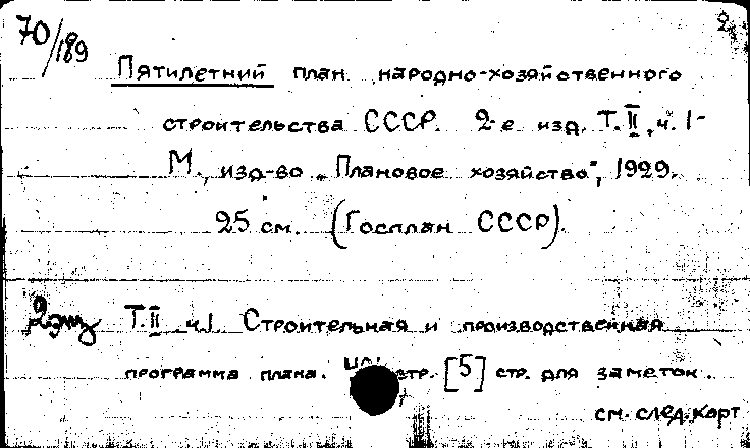 2
70/189
Пятилетний план народно-хозяйственного
строительства СССР. 2-е изд. Т. II, ч. 1-
М., изд-во „Плановое хозяйство", 1929.
25 см. (Госплан СССР).
2 экз Т. II ч. 1. Строительная и производственная
программа плана. стр. [5] стр. для заметок.
см. след. карт